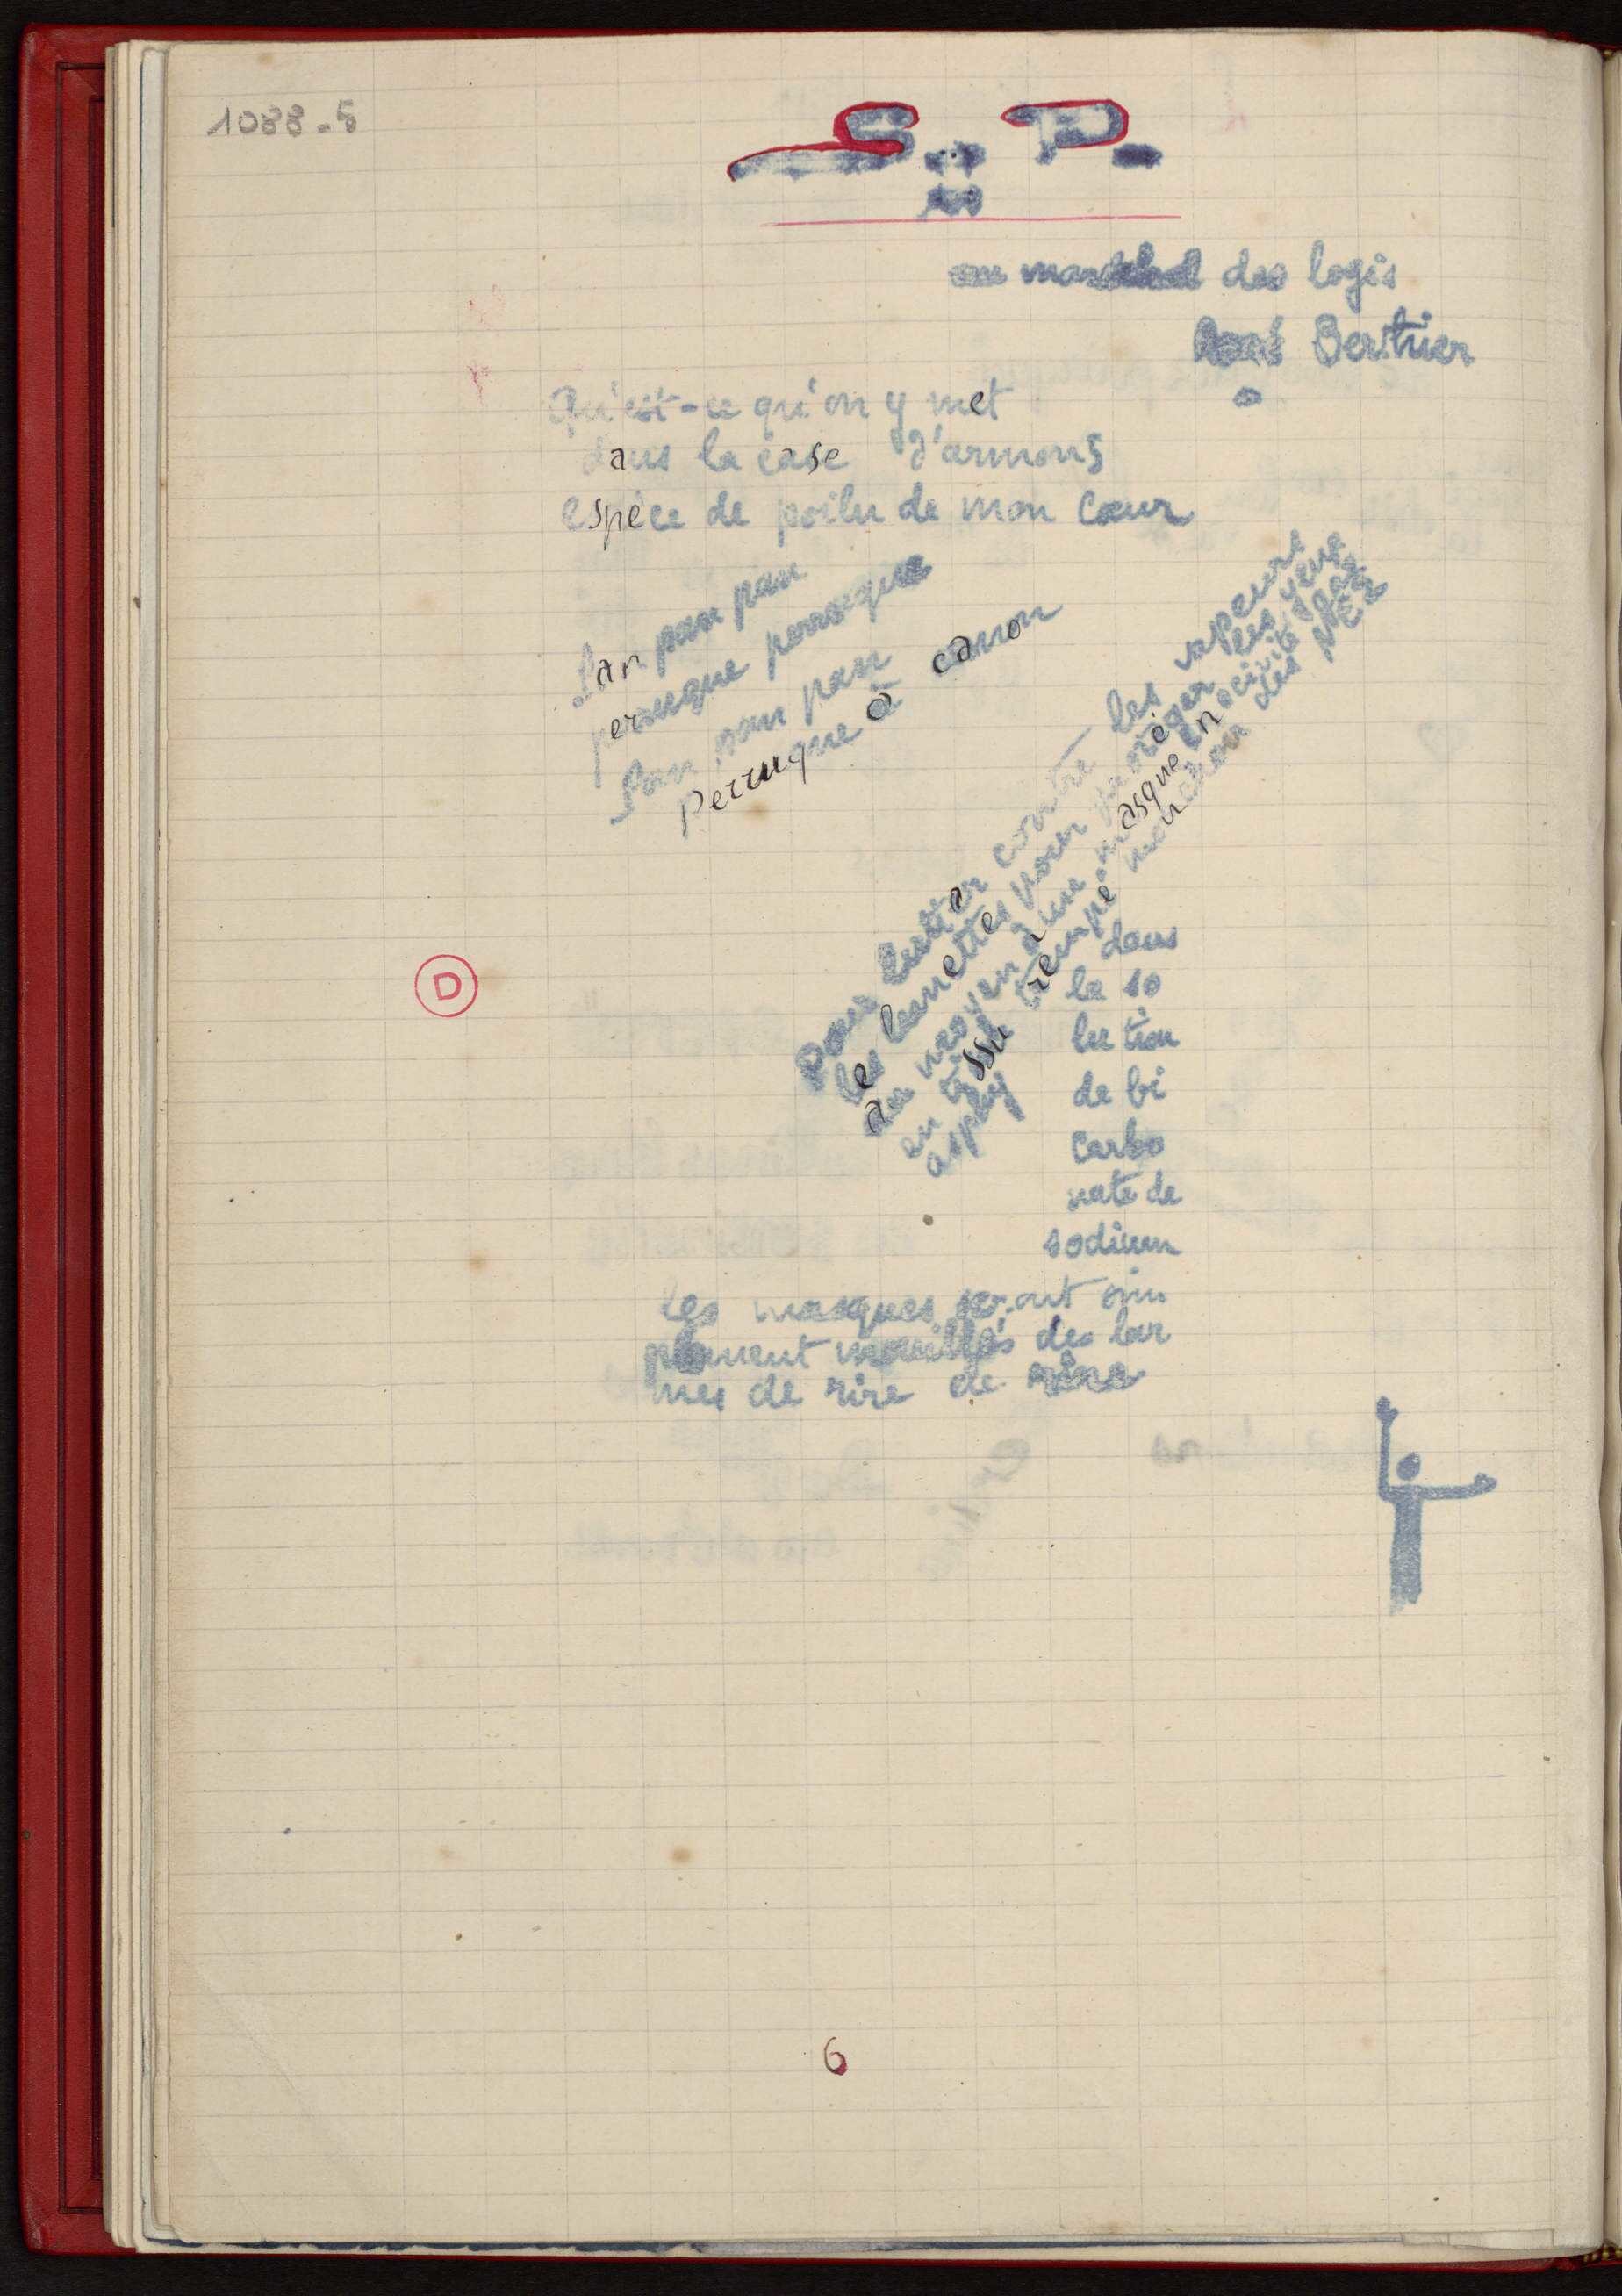 1088-5
S. P.
au maréchal des logis
René Berthier
Qu'est-ce qu'on y met
dans la case d'armons
espèce de poilu de mon cœur
Pan pan pan
perruque perruque
Pan pan pan
Perruque à canon
Pour lutter contre les vapeurs
les lunettes pour protéger les yeux
au moyen d'un masque nocivité gaz
un tissu trempé mouchoir des nez
asphy
dans
la so
lution
de bi
carbo
nate de
sodium
Les masques seront sim
plement mouillés des lar
mes de rire de rire
D
6